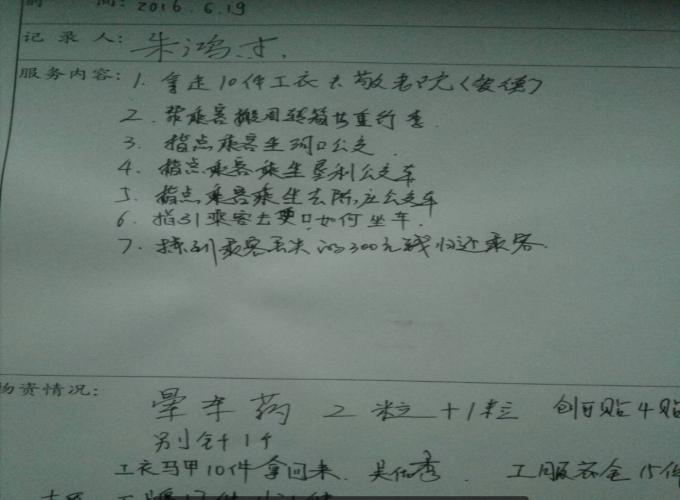 时 间: 2016.6.19
记录人: 朱鸿
服务内容: 1. 拿走10件工衣去敬老院
2. 帮乘客搬周转箱等重行李
3. 指点乘客坐河口公交
4. 指点乘客乘坐垦利公交车
5. 指点乘客乘坐去陈庄公交车
6. 指引乘客去 口如何坐车
7. 捡到乘客丢失的300元钱归还乘客.
物资情况: 晕车药 2粒+1粒 创可贴4贴
别针1个
工衣马甲10件拿回来. 吴 秀. 工服 15件